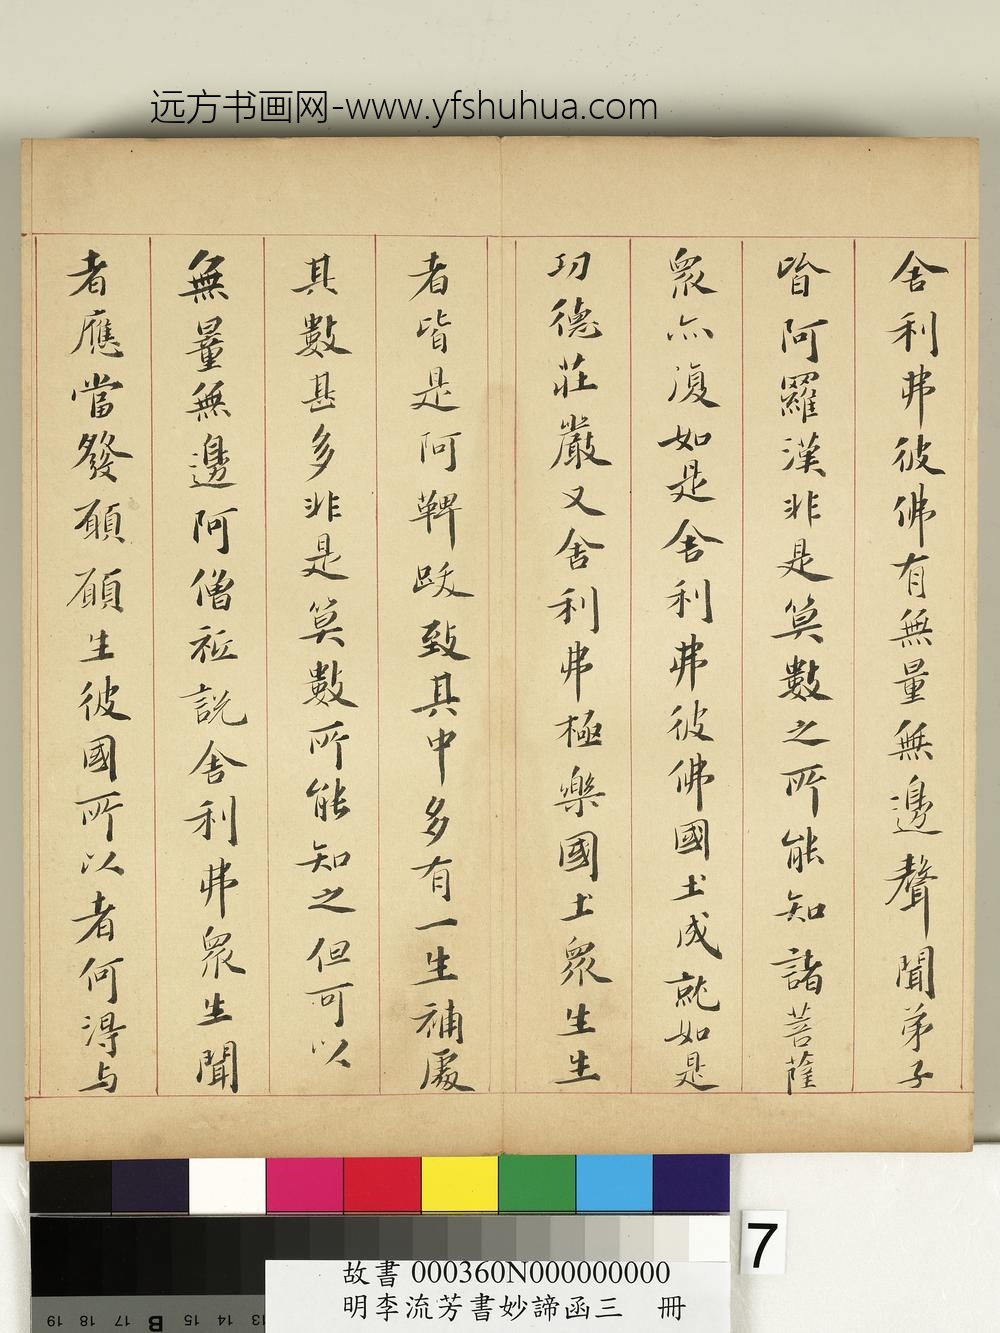 远方书画网-www.yfshuhua.com
舍利弗彼佛有無量無邊聲聞弟子
皆阿羅漢非是筭數之所能知諸菩薩
衆亦復如是舍利弗彼佛國土成就如是
功德莊嚴又舍利弗極樂國土衆生生
者皆是阿鞞跋致其中多有一生補處
其數甚多非是筭數所能知之但可以
無量無邊阿僧祇説舍利弗衆生聞
者應當發願願生彼國所以者何得与
7
故書 000360N000000000
明李流芳書妙諦函三　冊
19 18 17 B 15 14 13